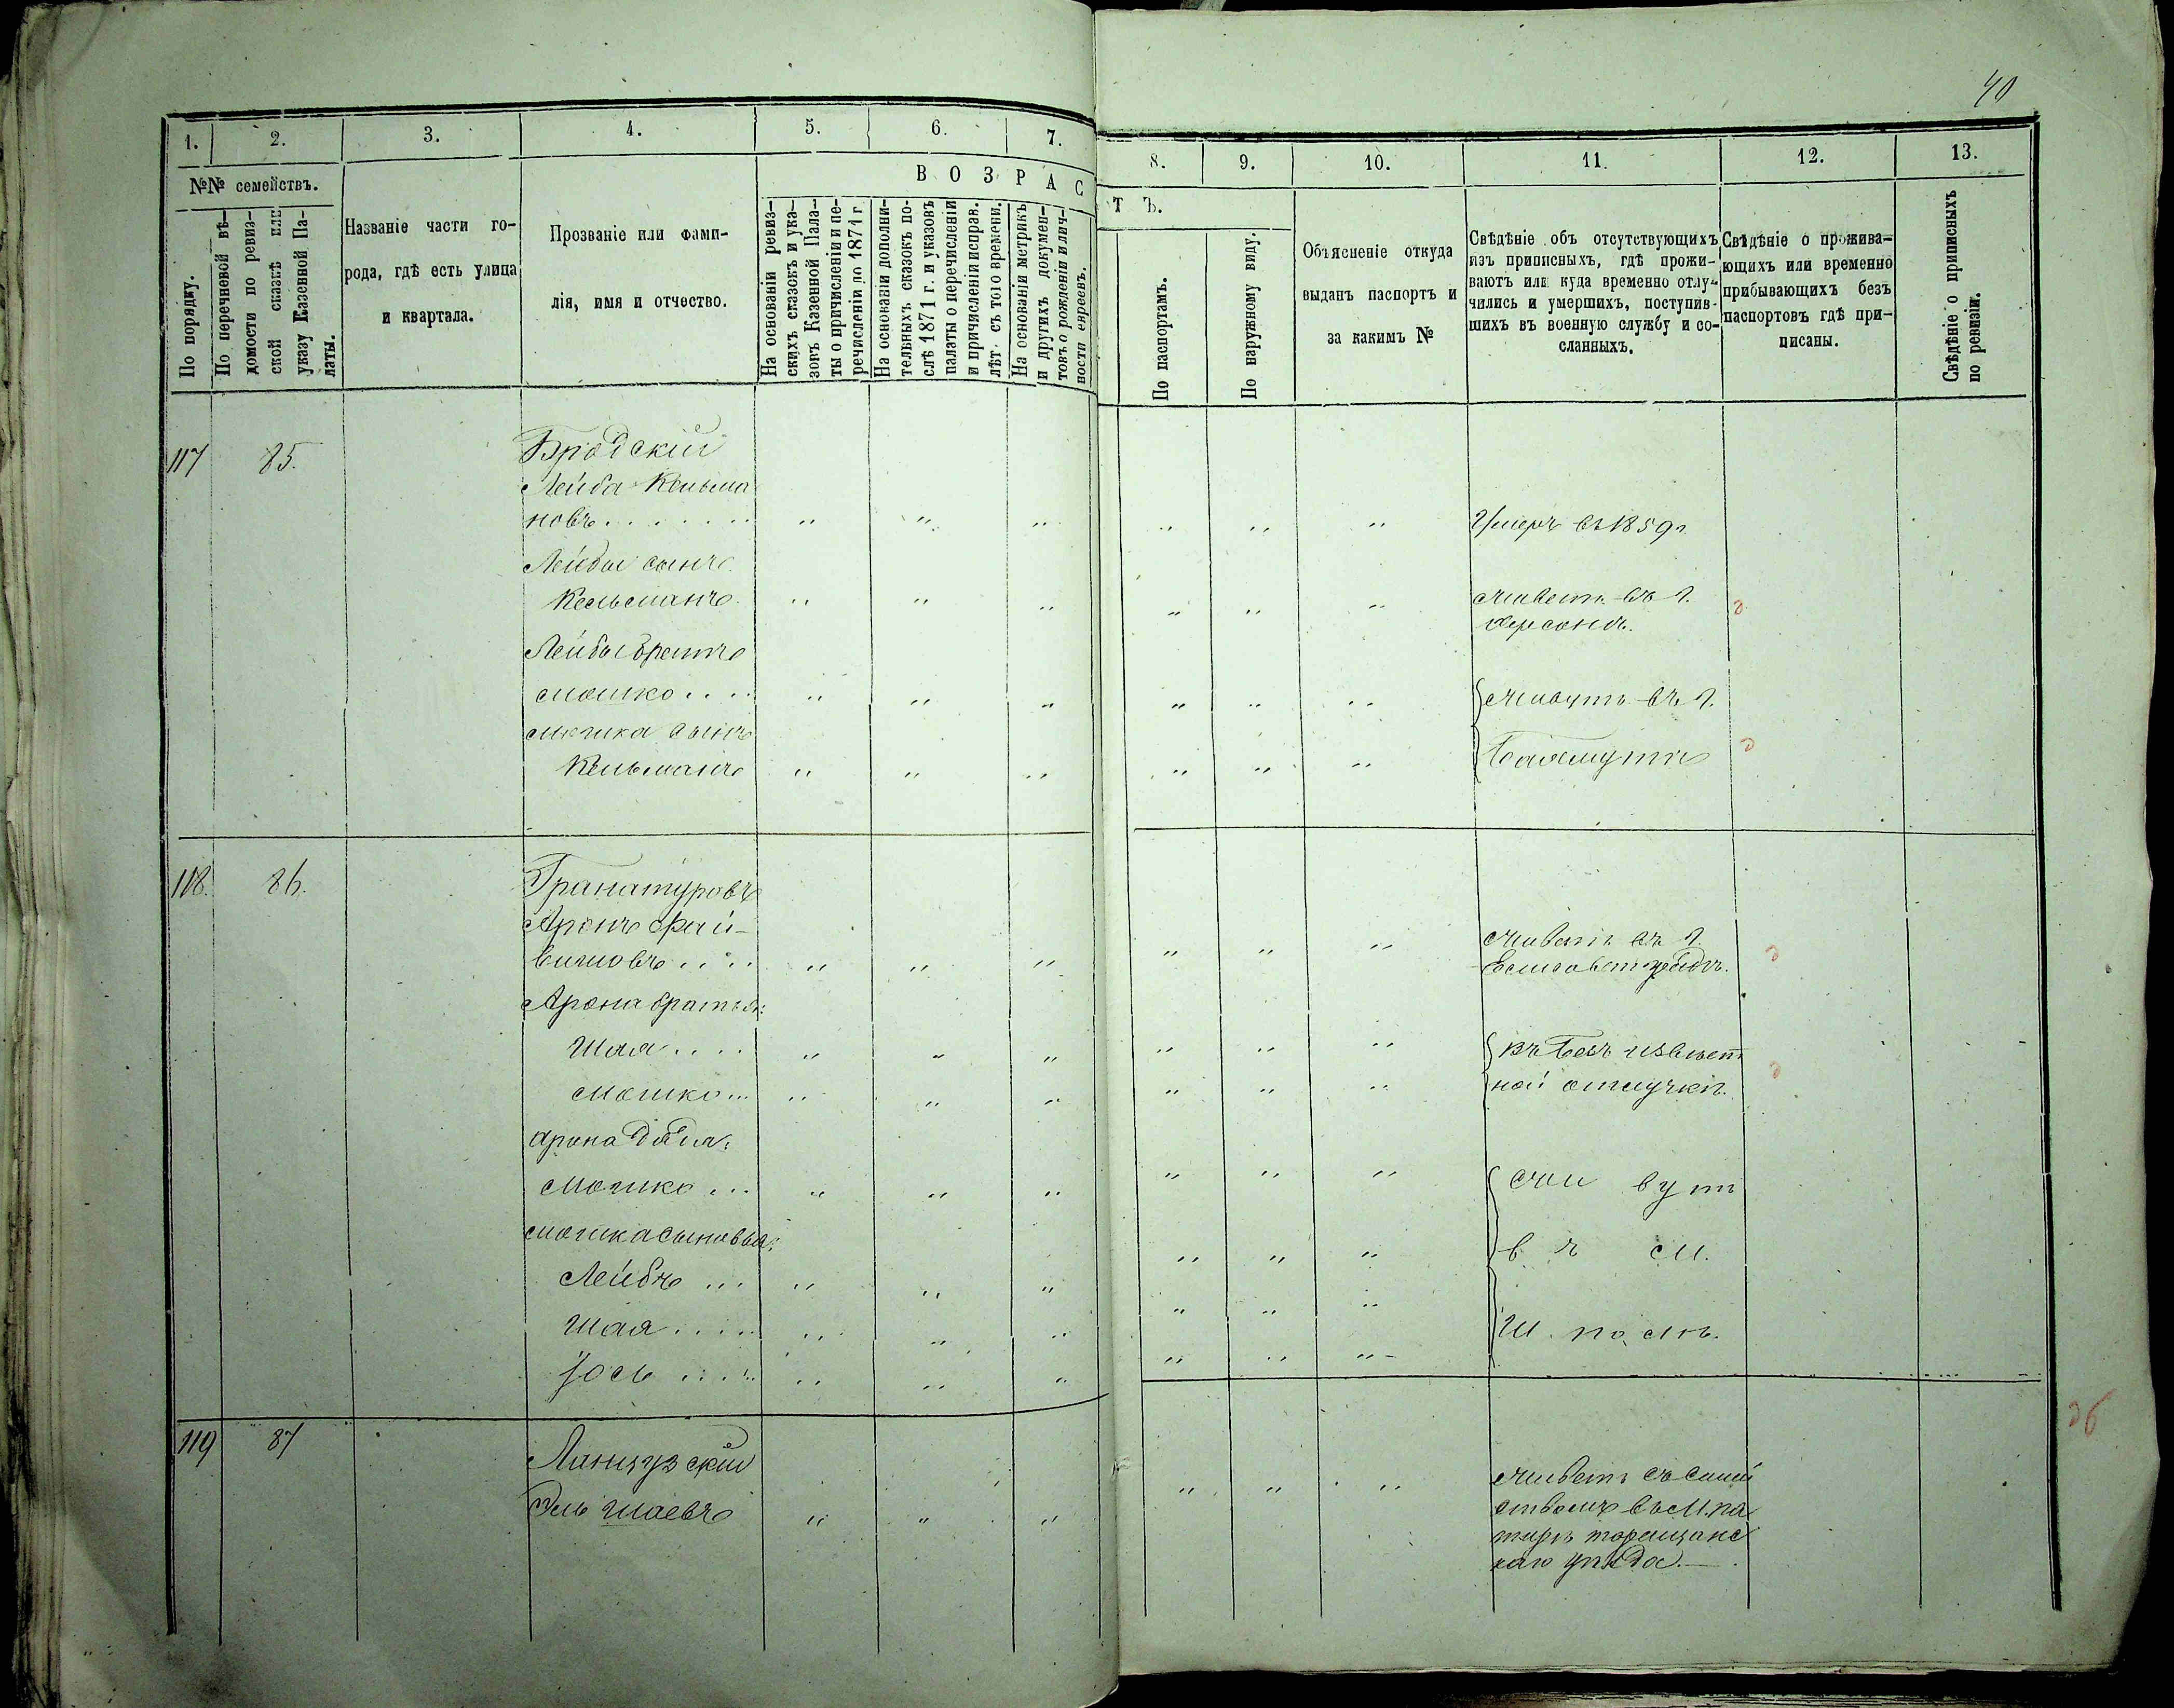 40
1. 2. 3. 4. 5. 6. 7. 8. 9. 10. 11. 12. 13.
№№ семействъ.
По порядку.
По перечневой вѣ-
домости по ревиз-
ской сказкѣ или
указу Казенной Па-
латы.
Названіе части го-
рода, гдѣ есть улица
и квартала.
Прозваніе или фами-
лія, имя и отчество.
ВОЗРАСТЪ.
На основаніи ревиз-
скихъ сказокъ и ука-
зовъ Казенной Пала-
ты о причисленіи и пе-
речисленіи до 1871 г
На основаніи дополни-
тельныхъ сказокъ по-
слѣ 1871 г. и указовъ
палаты о перечисленіи
и причисленіи исправ.
лѣт. съ того времени.
На основаніи метрикъ
и другихъ докумен-
товъ о рожденіи и лич-
ности евреевъ.
По паспортамъ.
По наружному виду.
Объясненіе откуда
выданъ паспортъ и
за какимъ №
Свѣдѣніе объ отсутствующихъ
изъ приписныхъ, гдѣ прожи-
ваютъ или куда временно отлу-
чились и умершихъ, поступив-
шихъ въ военную службу и со-
сланныхъ.
Свѣдѣніе о прожива-
ющихъ или временно
прибывающихъ безъ
паспортовъ гдѣ при-
писаны.
Свѣдѣніе о приписныхъ
по ревизіи.
117 85. Бродскій
Лейба Кельма
новъ....... " " " " " " Умеръ въ 1859 г.
Лейбы сынъ
Кельманъ " " " " " " Живетъ въ г.
Херсонѣ.
Лейбы братъ
Мошко.... " " " " " " Живутъ въ г.
Мошка сынъ
Кельманъ " " " " " " Бахмутѣ
118. 86. Гранатуровъ
Аронъ Фай-
вишовъ.... " " " " " " Живетъ въ г.
Елисаветградѣ.
Арона братья:
Шая.... " " " " " " въ безъ извѣст
Мошко... " " " " " " ной отлучкѣ.
Арона дядя:
Мошко... " " " " " " Живутъ
Мошка сыновья:
Лейбъ... " " " " " " въ м.
Шая..... " " " " " " Шполѣ.
Іось..... " " " " " "
119 87 Ланцузскій
Эль Шаевъ " " " " " " Живетъ съ семей
ствомъ въ м.
уѣзда.—